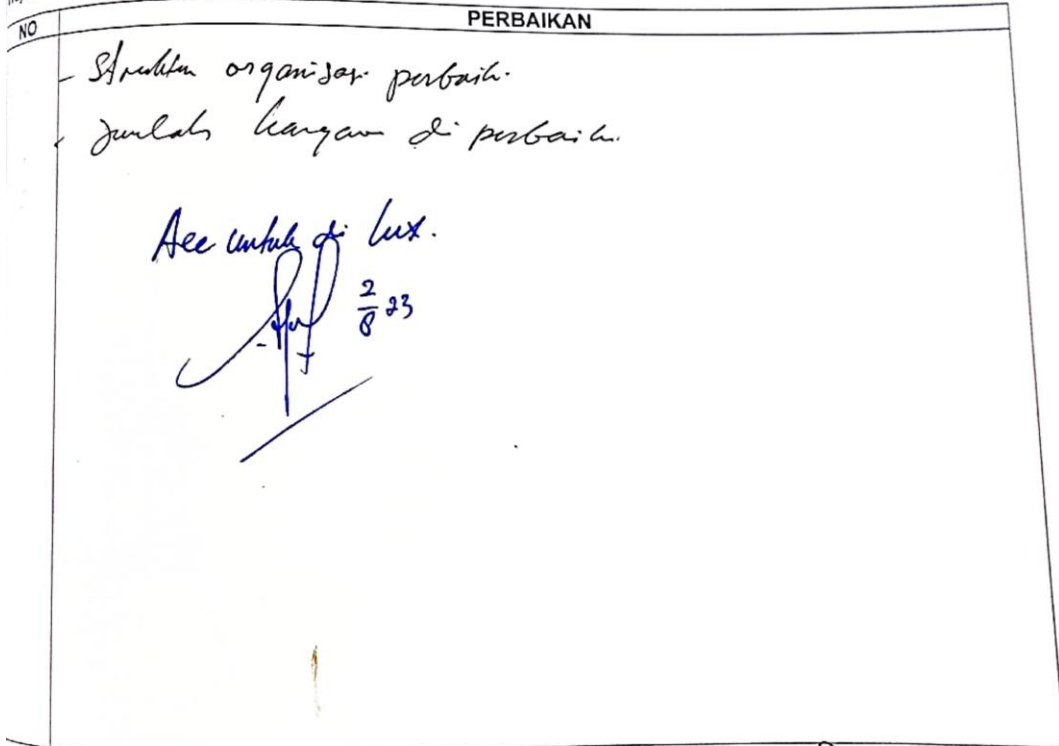 NO PERBAIKAN
- Struktur organisasi perbaiki.
- Jumlah karyawan di perbaiki.
Acc untuk di lux.
2/8 23